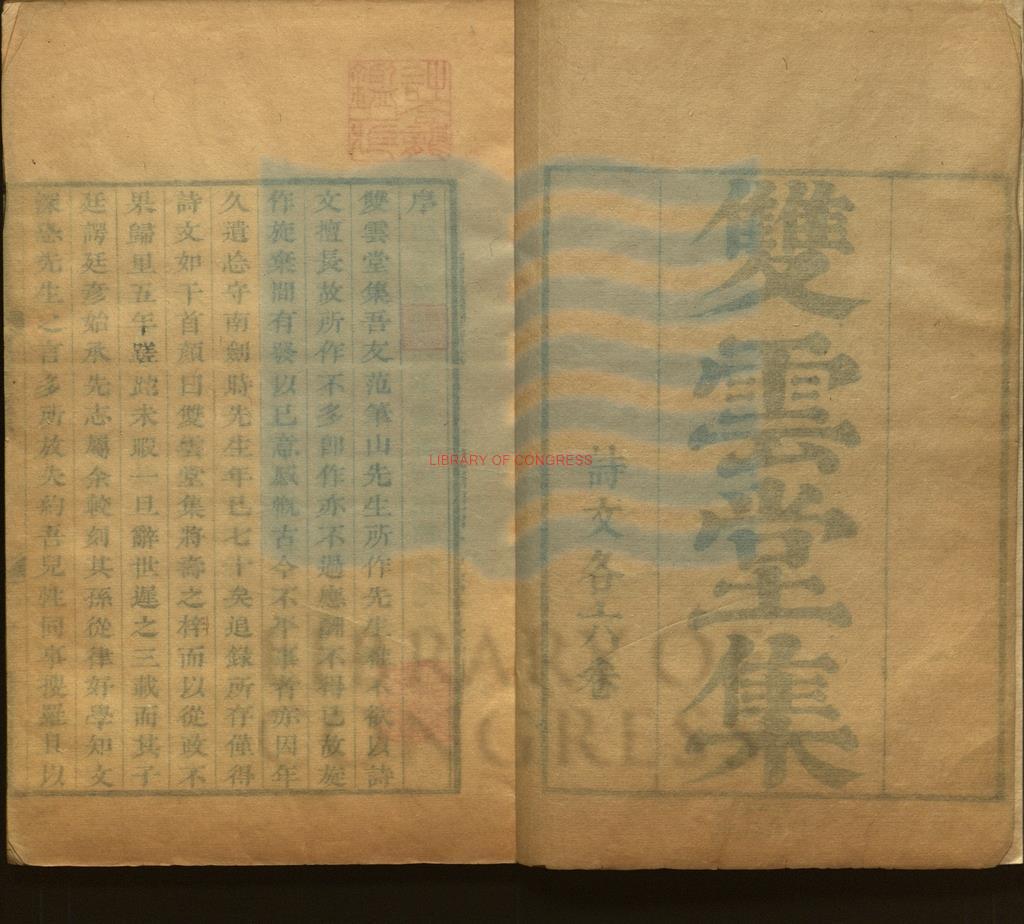 雙雲堂集
詩文各六卷
序
雙雲堂集吾友范筆山先生所作先生雅不欲以詩
文擅長故所作不多即作亦不過應酬不得已故旋
作旋棄間有發以已意感慨古今不平事者亦因年
久遺忘守南劍時先生年已七十矣追錄所存僅得
詩文如干首顏曰雙雲堂集將壽之梓而以從政不
果歸里五年蹉跎未暇一旦辭世遲之三載而其子
廷諤廷彥始承先志屬余較刻其孫從律好學知文
深恐先生之言多所放失約吾兒同事搜羅且以
LIBRARY OF CONGRESS
LIBRARY OF
CONGRESS